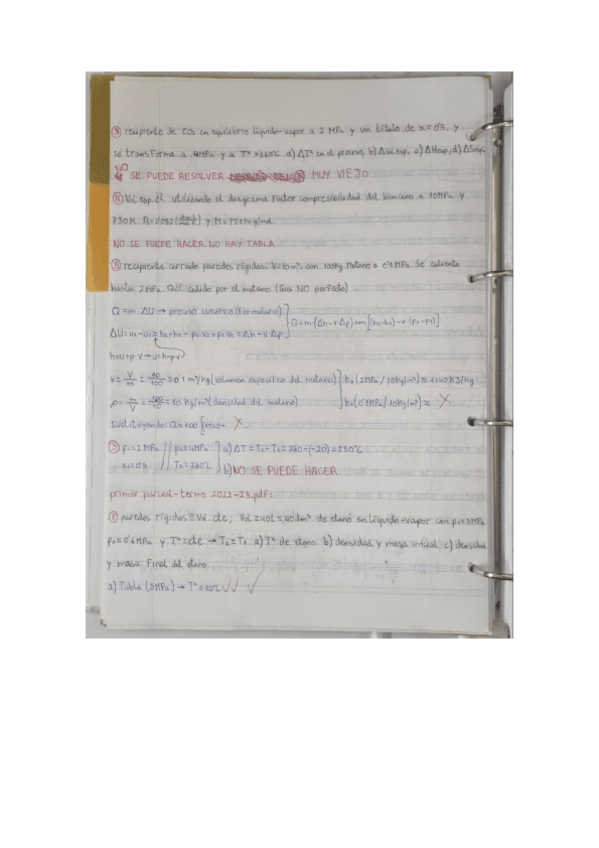 ③ recipiente de CO₂ en equilibrio líquido-vapor a 2 MPa y un título de x=0'5, y
se transforma a 4MPa y a Tª=260ºC a) ΔTª en el proceso, b) Δu esp, c) ΔHesp, d) ΔSesp.
NO SE PUEDE RESOLVER MUY VIEJO
④ Vol esp. utilizando el diagrama factor compresibilidad del benceno a 10MPa y
730K. R=0'082 y M=
NO SE PUEDE HACER NO HAY TABLA
⑤ recipiente cerrado paredes rígidas, V=10m³, con 100kg Metano a 0'1 MPa. Se calienta
hasta 2MPa. Q cedido por el metano (Gas NO perfecto)
Q=m·ΔU → proceso isocórico (Formulario)
ΔU=u₂-u₁=h₂-h₁-p₂v₂+p₁v₁=Δh-vΔp
Q=m(Δh-vΔp)=m[(h₂-h₁)-v·(p₂-p₁)]
h=u+p·v→u=h-p·v
v=V/m=10/100=0'1 m³/kg (volumen específico del metano)
h₂(2MPa/10kg/m³)≈1140KJ/Kg
ρ=m/V=100/10=10 Kg/m³ (densidad del metano)
h₁(0'1MPa/10kg/m³)≈ X
Sustituyendo: Q=100[1140- X
③ p₁=2MPa p₂=4MPa a) ΔT=T₂-T₁=260-(-20)=280ºC
x₁=0'5 T₂=260ºC b) NO SE PUEDE HACER
primer parcial-termo 2022-23.pdf:
① paredes rígidas≡Vol. cte; Vol=40l=40dm³ de etano en líquido-vapor con p₁=3MPa
p₂=0'6MPa y Tª=cte → T₂=T₁. a) Tª de etano. b) densidad y masa inicial. c) densidad
y masa final del etano.
a) Tabla (3MPa) → Tª=10ºC